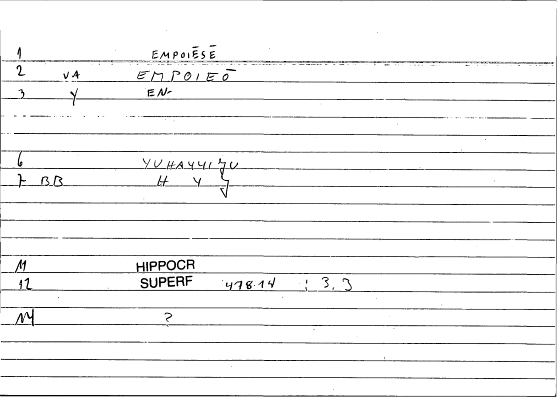 1 EMPOIĒSĒ
2 VA EMPOIEŌ
3 Y EN-
6 YUHAYYI
7 BB H Y
11 HIPPOCR
12 SUPERF 478.14 : 3, 3
14 ?